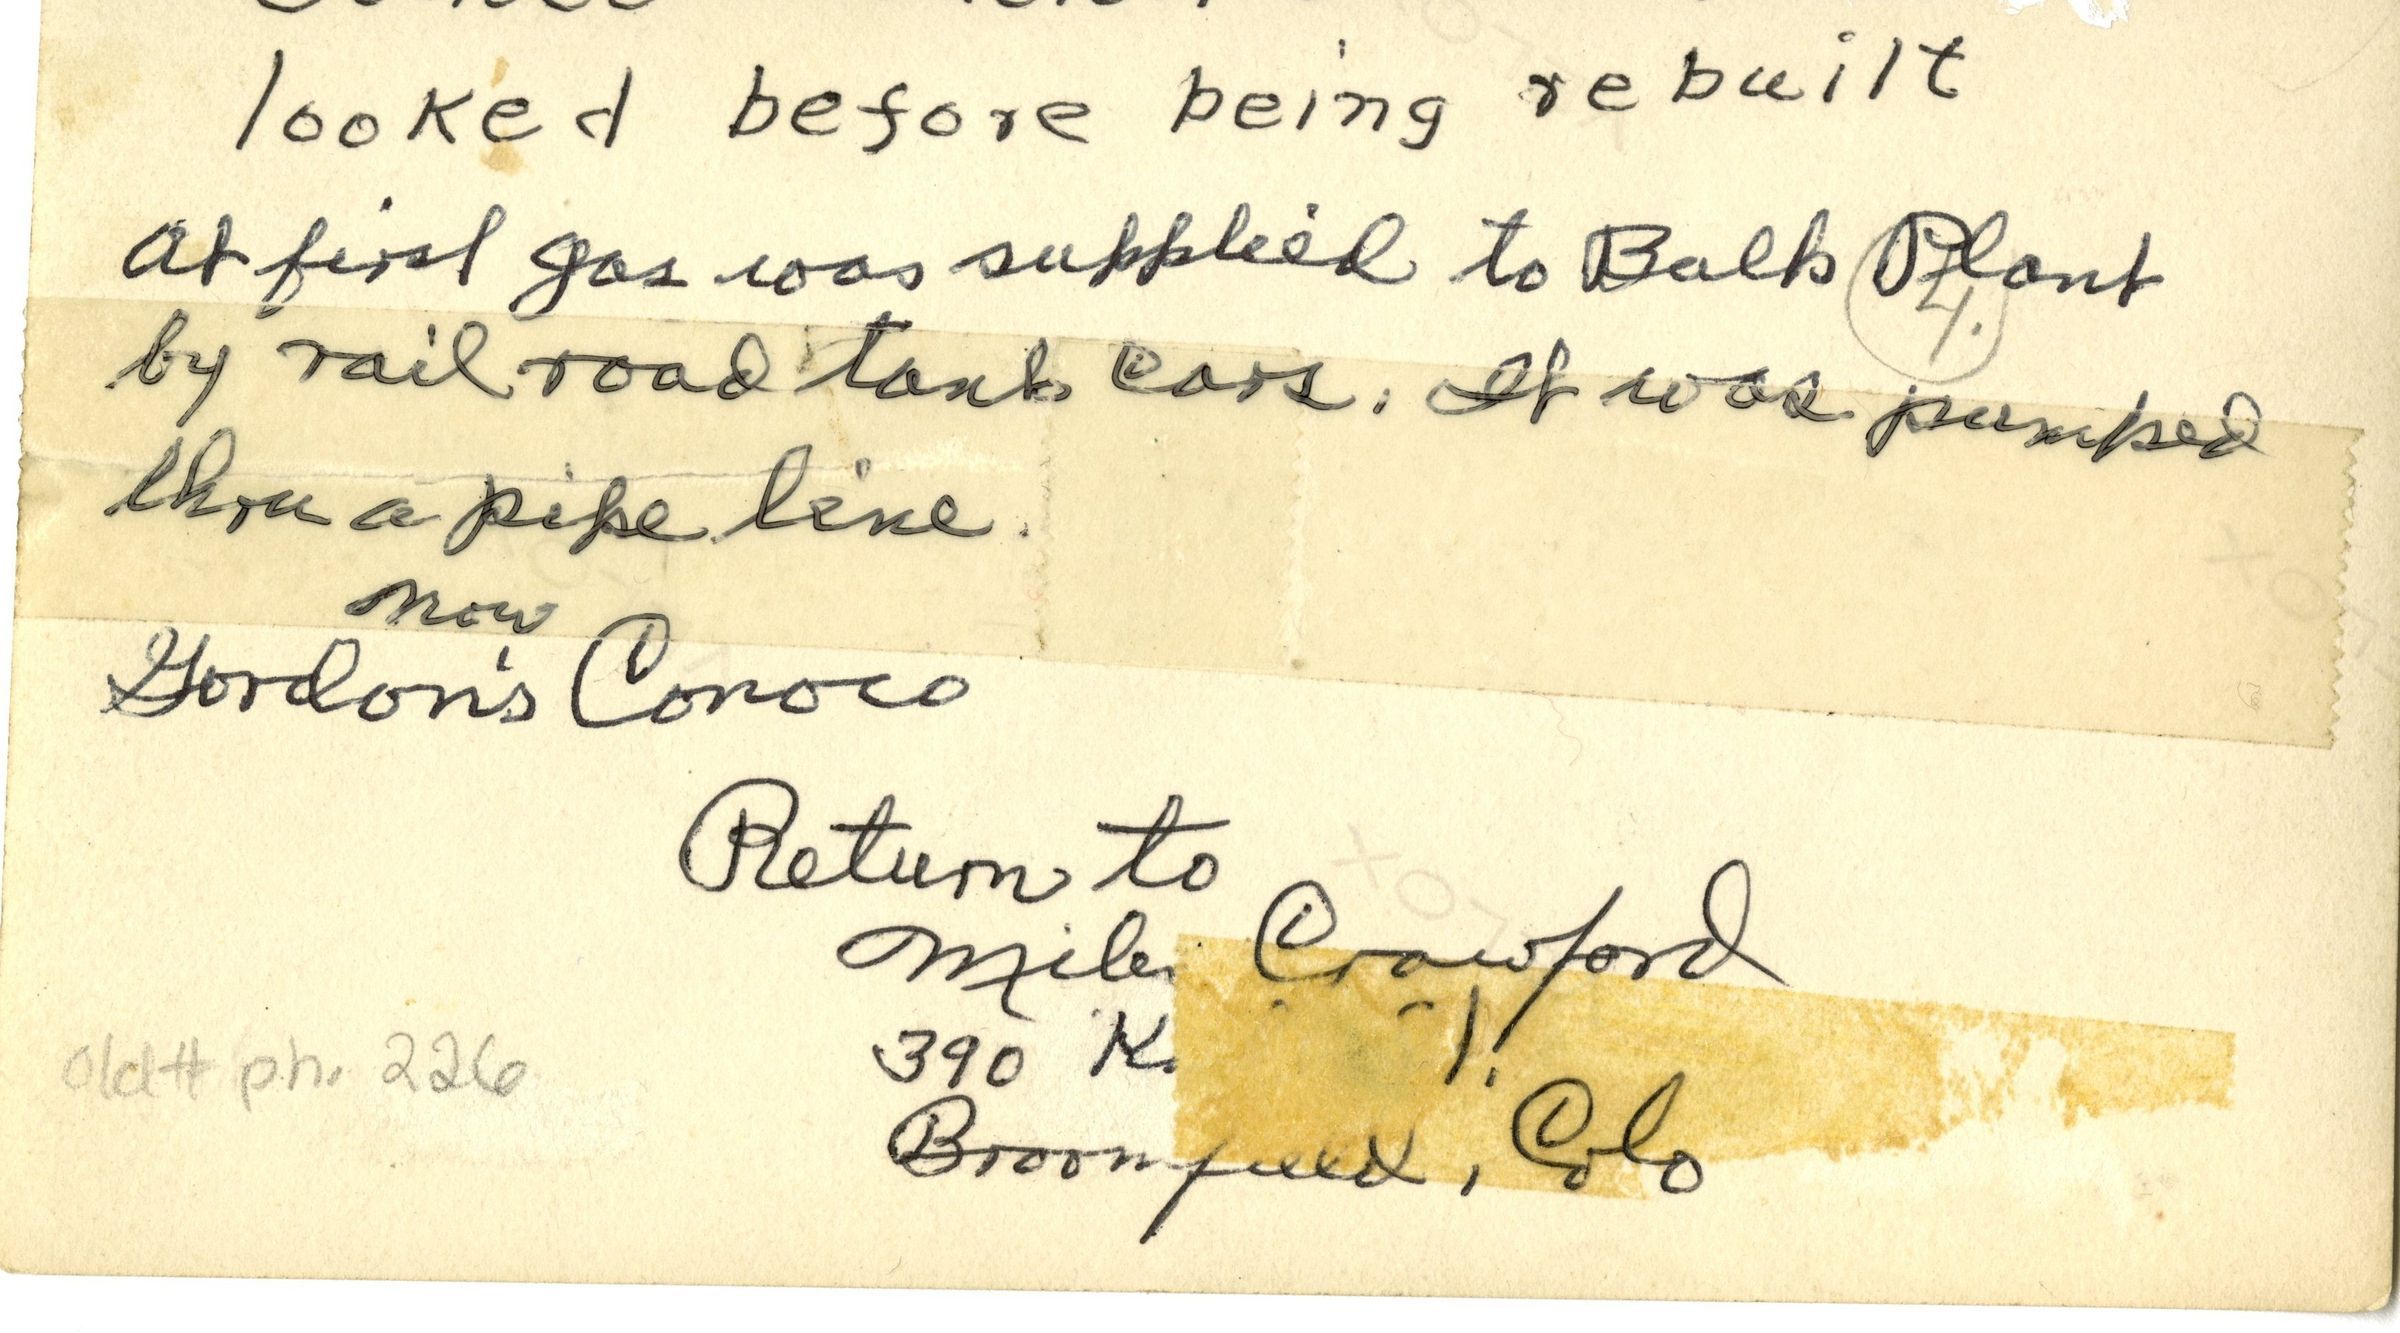 looked before being rebuilt
At first gas was supplied to Bulk Plant
4.
by rail road tank cars. It was pumped
thru a pipe line.
now
Gordon's Conoco
Return to
Crawford
390
Broomfield, Colo
old# ph. 226